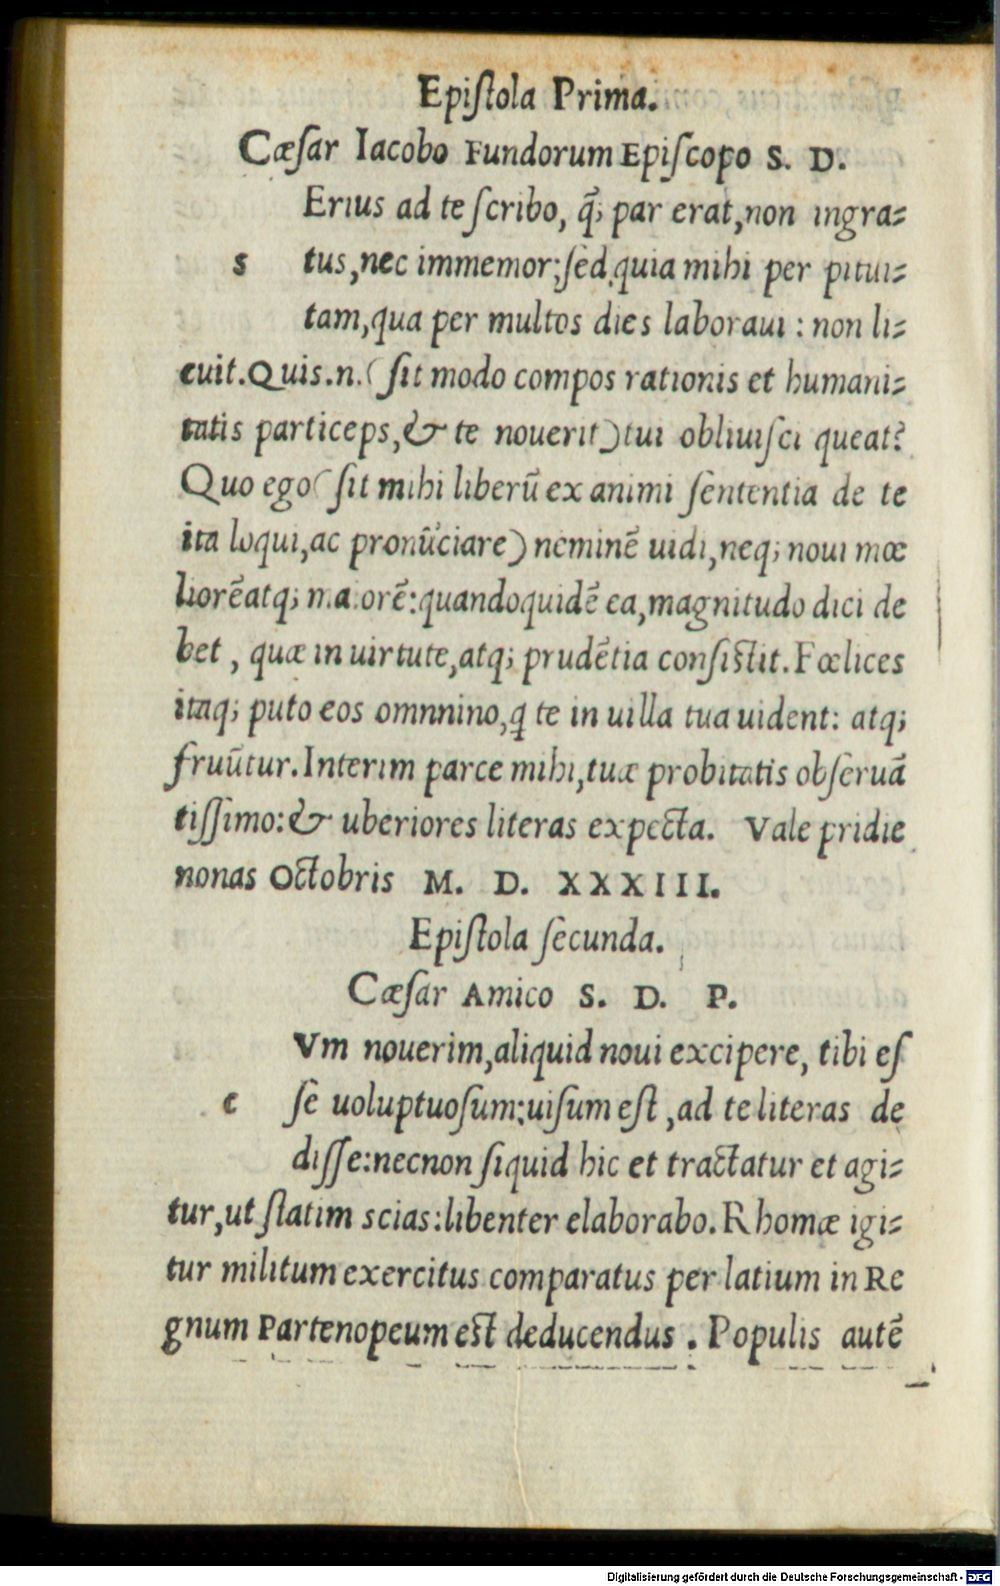 Epiſtola Prima.
Cæſar Iacobo Fundorum Epiſcopo S. D.
Erius ad te ſcribo, q̃; par erat, non ingra⸗
s tus, nec immemor; ſed, quia mihi per pitui⸗
tam, qua per multos dies laboraui : non li⸗
cuit. Quis .n. (ſit modo compos rationis et humani⸗
tatis particeps, & te nouerit) tui obliuiſci queat?
Quo ego (ſit mihi liberũ ex animi ſententia de te
ita loqui, ac pronũciare) neminẽ uidi, neq; noui mæ
liorẽ atq; maiorẽ: quandoquidẽ ea, magnitudo dici de
bet , quæ in uirtute, atq; prudẽtia conſiſtit. Fœlices
itaq; puto eos omnnino, q te in uilla tua uident: atq;
fruũtur. Interim parce mihi, tuæ probitatis obſeruã
tiſſimo: & uberiores literas expecta. Vale pridie
nonas Octobris M. D. XXXIII.
Epiſtola ſecunda.
Cæſar Amico S. D. P.
Vm nouerim, aliquid noui excipere, tibi eſ
c ſe uoluptuoſum; uiſum eſt , ad te literas de
diſſe: necnon ſiquid hic et tractatur et agi⸗
tur, ut ſtatim scias: libenter elaborabo. Rhomæ igi⸗
tur militum exercitus comparatus per latium in Re
gnum Partenopeum eſt deducendus . Populis autẽ
Digitalisierung gefördert durch die Deutsche Forschungsgemeinschaft - DFG